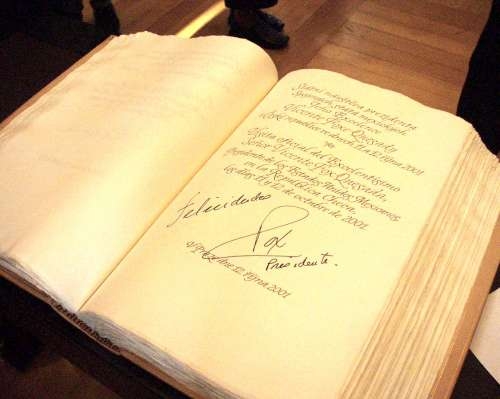 Státní návštěva prezidenta
Spojených států mexických
Jeho Excelence
Vicente Fox Quesady
v České republice ve dnech 11. a 12. října 2001
Visita oficial del Excelentísimo
Señor Vicente Fox Quesada,
Presidente de los Estados Unidos Mexicanos,
en la República Checa,
los días 11 y 12 de octubre de 2001
Felicidades
Fox
Presidente.
V Praze dne 12. října 2001